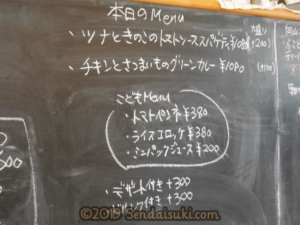 本日のMenu
・ツナときのこのトマトソーススパゲティ
大盛り
+200)
・チキンとさつまいものグリーンカレー ¥1080
(+100)
こどもMenu
・トマトペンネ ¥380
・ライスコロッケ ¥380
・ミニパックジュース ¥200
・デザート付き +300
・ドリンク付き +300
©2015 Sendaisuki.com